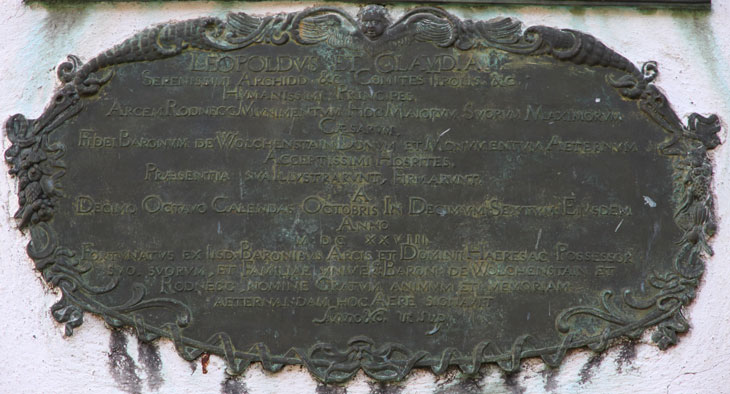 LEOPOLDVS ET CLAVDIA
SERENISSIMI ARCHIDD. &C. COMITES &C.
HUMANISSIMI PRINCIPES
ARCEM RODNEGG MUNIMENTUM HOC MAIORUM SUORUM
CÆSARUM,
FIDEI BARONUM DE WOLCHENSTAIN DONUM ET MONUMENTUM AETERNUM
ACCEPTISSIMI HOSPITES
PRÆSENTIA SVA ILLUSTRARUNT, FIRMARUNT.
A
DECIMO OCTAVO CALENDAS OCTOBRIS IN DECIMUM SEXTUM EIUSDEM
ANNO
M DC XXVIII
FORTUNATUS EX IISD. BARONIBUS ARCIS ET DOMINII HAERES AC POSSESSOR
SUO, SUORUM, ET FAMILIAE BARON. DE WOLCHENSTAIN ET
RODNEGG NOMINE GRATUM ANIMUM ET MEMORIAM
AETERNANDAM HOC AERE